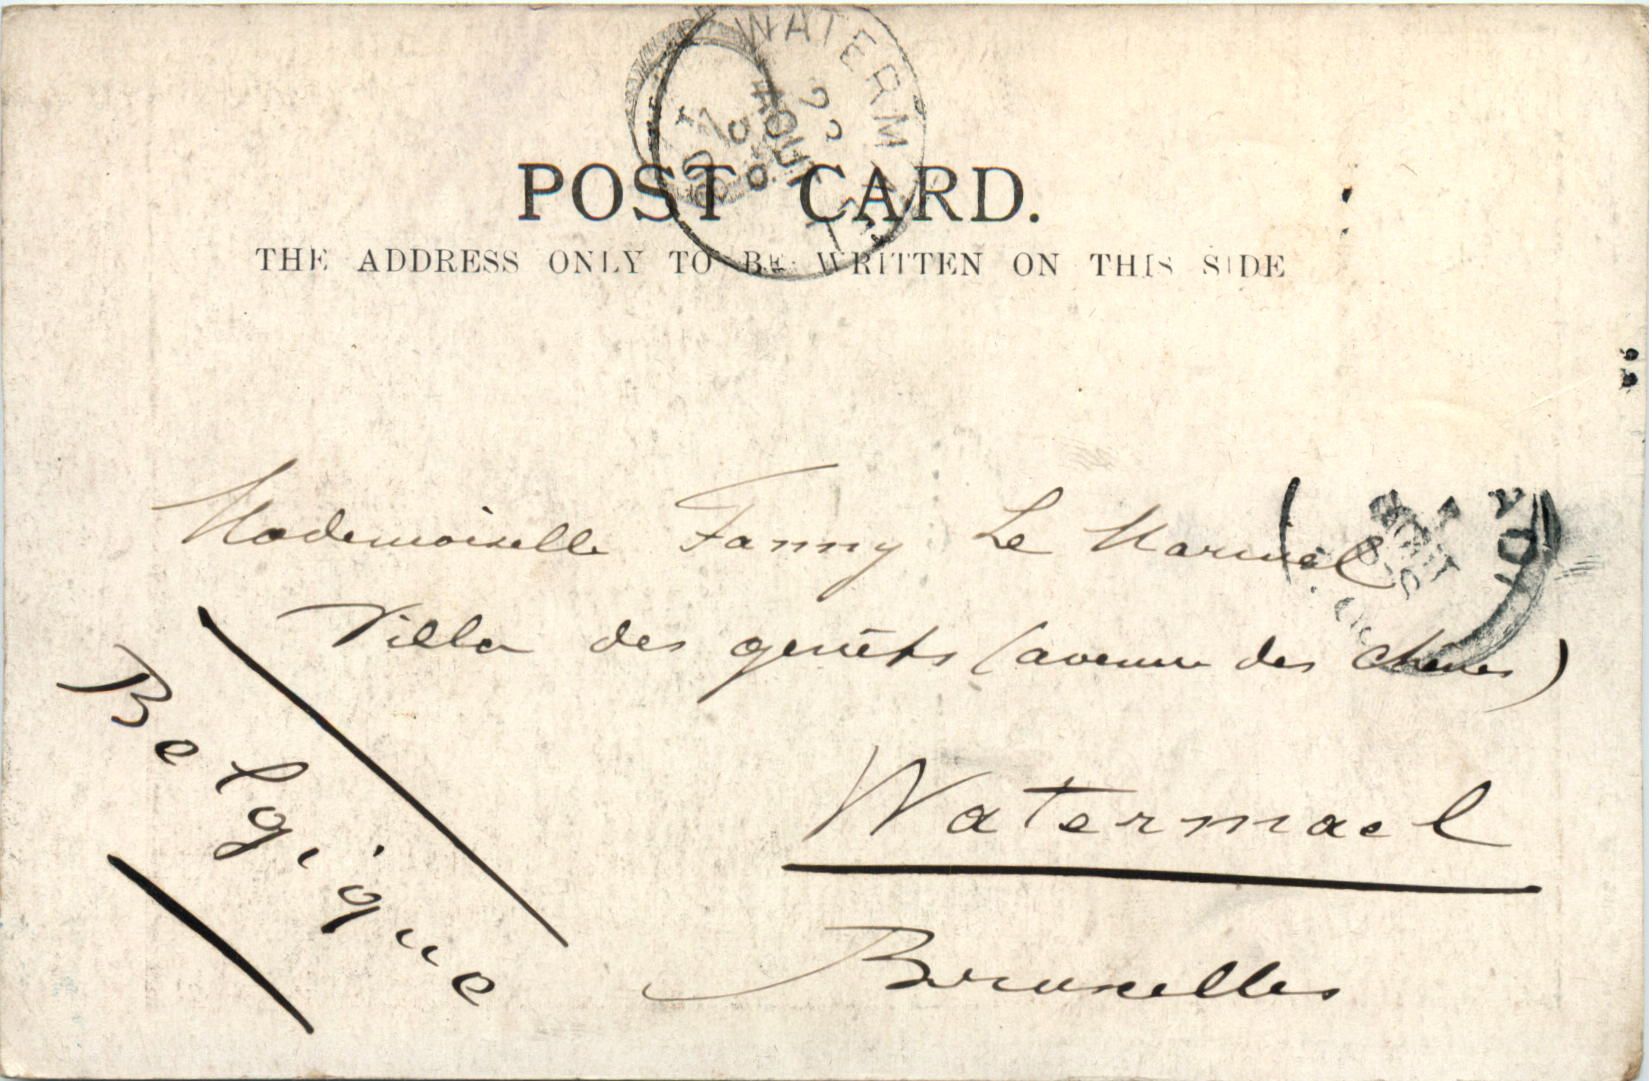 WATERM
22
AOUT
POST CARD.
THE ADDRESS ONLY TO BE WRITTEN ON THIS SIDE
Mademoiselle Fanny Le
Villa des genêts (avenue des chênes)
Watermael
Bruxelles
Belgique